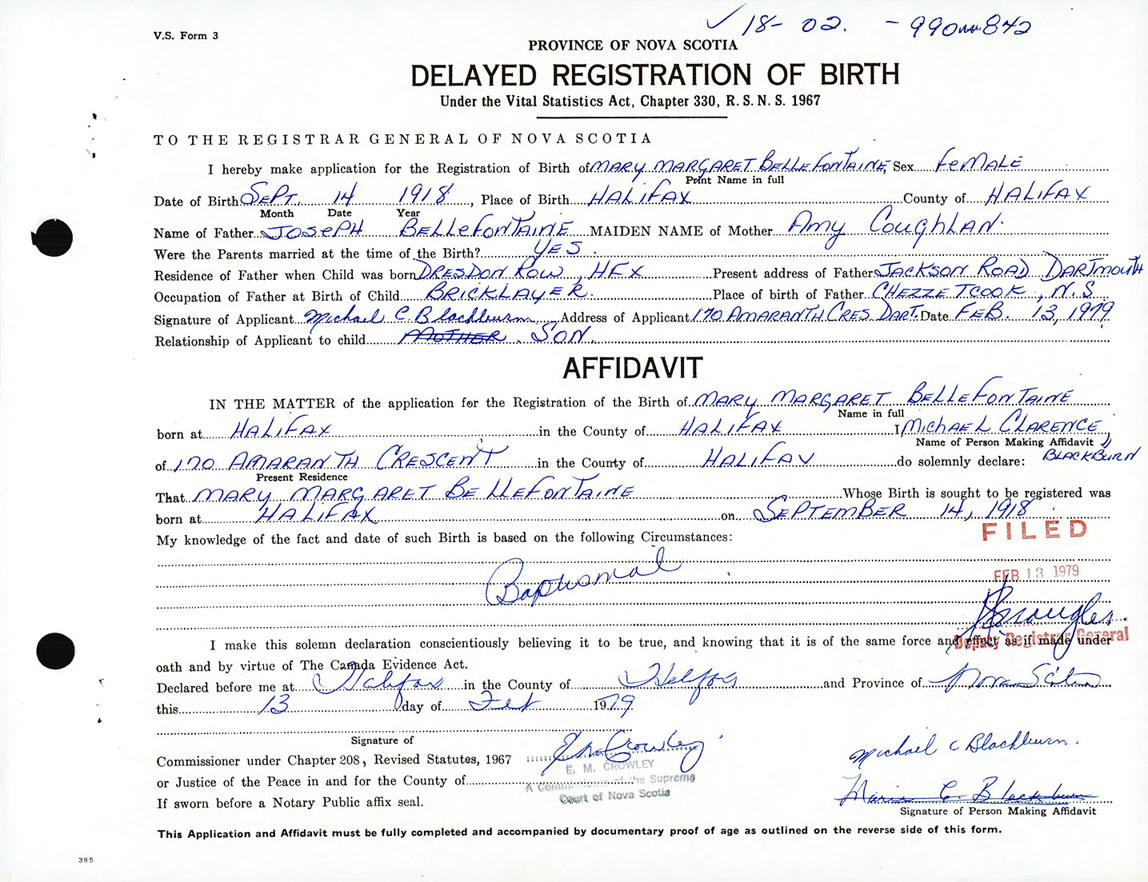 18- 02. - 990 842
V.S. Form 3
PROVINCE OF NOVA SCOTIA
DELAYED REGISTRATION OF BIRTH
Under the Vital Statistics Act, Chapter 330, R.S.N.S. 1967
TO THE REGISTRAR GENERAL OF NOVA SCOTIA
I hereby make application for the Registration of Birth of MARY MARGARET BELLEFONTAINE, Sex FEMALE
Print Name in full
Date of Birth SEPT. 14 1918, Place of Birth HALIFAX County of HALIFAX
Month Date Year
Name of Father JOSEPH BELLEFONTAINE MAIDEN NAME of Mother Amy Coughlan.
Were the Parents married at the time of the Birth? YES
Residence of Father when Child was born DRESDON ROW, HFX Present address of Father JACKSON ROAD DARTMOUTH
Occupation of Father at Birth of Child BRICKLAYER. Place of birth of Father CHEZZETCOOK, N.S
Signature of Applicant Michael C Blackburn Address of Applicant 170 AMARANTH CRES DART. Date FEB. 13, 1979
Relationship of Applicant to child MOTHER. SON.
AFFIDAVIT
IN THE MATTER of the application for the Registration of the Birth of MARY MARGARET BELLEFONTAINE
Name in full
born at HALIFAX in the County of HALIFAX I MICHAEL CLARENCE
Name of Person Making Affidavit
of 170 AMARANTH CRESCENT in the County of HALIFAX do solemnly declare: BLACKBURN
Present Residence
That MARY MARGARET BELLEFONTAINE Whose Birth is sought to be registered was
born at HALIFAX on SEPTEMBER 14, 1918
My knowledge of the fact and date of such Birth is based on the following Circumstances:
FILED
FEB 13 1979
Baptismal
Deputy Registrar General
I make this solemn declaration conscientiously believing it to be true, and knowing that it is of the same force and effect as if made under
oath and by virtue of The Canada Evidence Act.
Declared before me at Halifax in the County of Halifax and Province of Nova Scotia
this 13 day of Feb 1979
Signature of
Commissioner under Chapter 208, Revised Statutes, 1967 E M Crowley
E. M. CROWLEY
Michael C Blackburn.
or Justice of the Peace in and for the County of
A Commissioner of the Supreme
Court of Nova Scotia
Marie C Blackburn
If sworn before a Notary Public affix seal.
Signature of Person Making Affidavit
This Application and Affidavit must be fully completed and accompanied by documentary proof of age as outlined on the reverse side of this form.
385